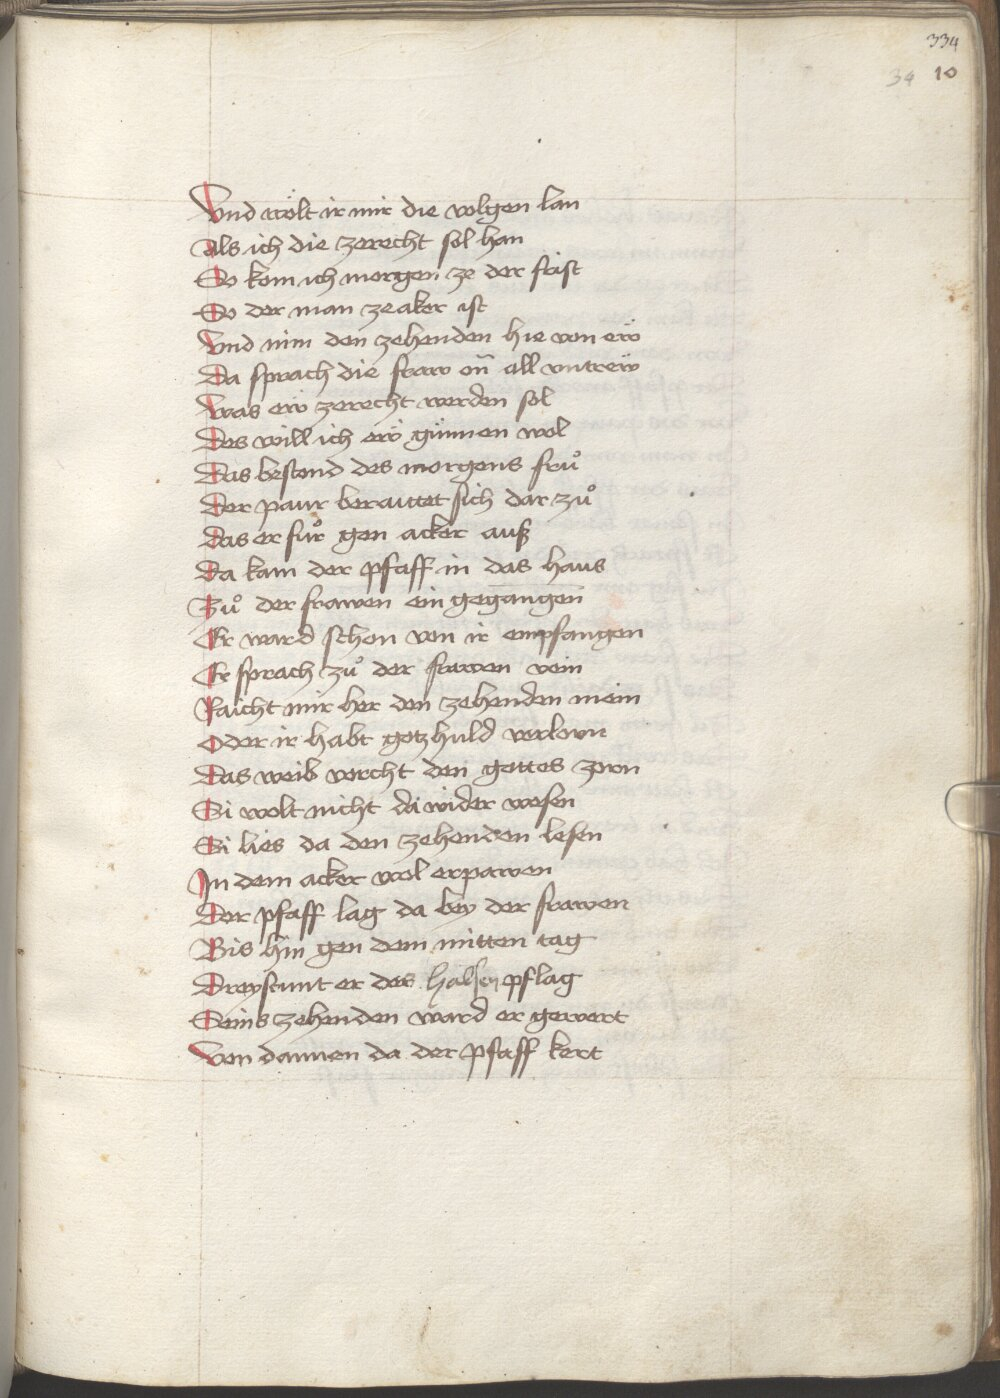 334
34 10
Vnd wölt ir mir die volgen lan
Als ich die zerecht sol han
So kom ich morgen ze der frist
So der man ze aker ist
Vnd nim den zehenden hie von eẅ
Da sprach die fraw on̄ all vntreẅ
Was eẅ zerecht werden sol
Des will ich eẅ günnen wol
Das bestend des morgens frůͦ
Der paur beraittet sich dar zůͦ
Das er fůr gen acker auß
Da kam der pfaff in das haus
Zůͦ der frawen ein gegangen
Er ward schon von ir empfangen
Er sprach zůͦ der frawen vein
Raicht mir her den zehenden mein
Oder ir habt gotz huld verlorn
Das weib vorcht den gottes zorn
Si wolt nicht da wider wesen
Si lies da den zehenden lesen
In dem acker wol erpawen
Der pfaff lag da bey der frawen
Bis hin gen dem mitten tag
Dreystunt er des halsen pflag
Seins zehenden ward er gewert
Von dannen da der pfaff kert